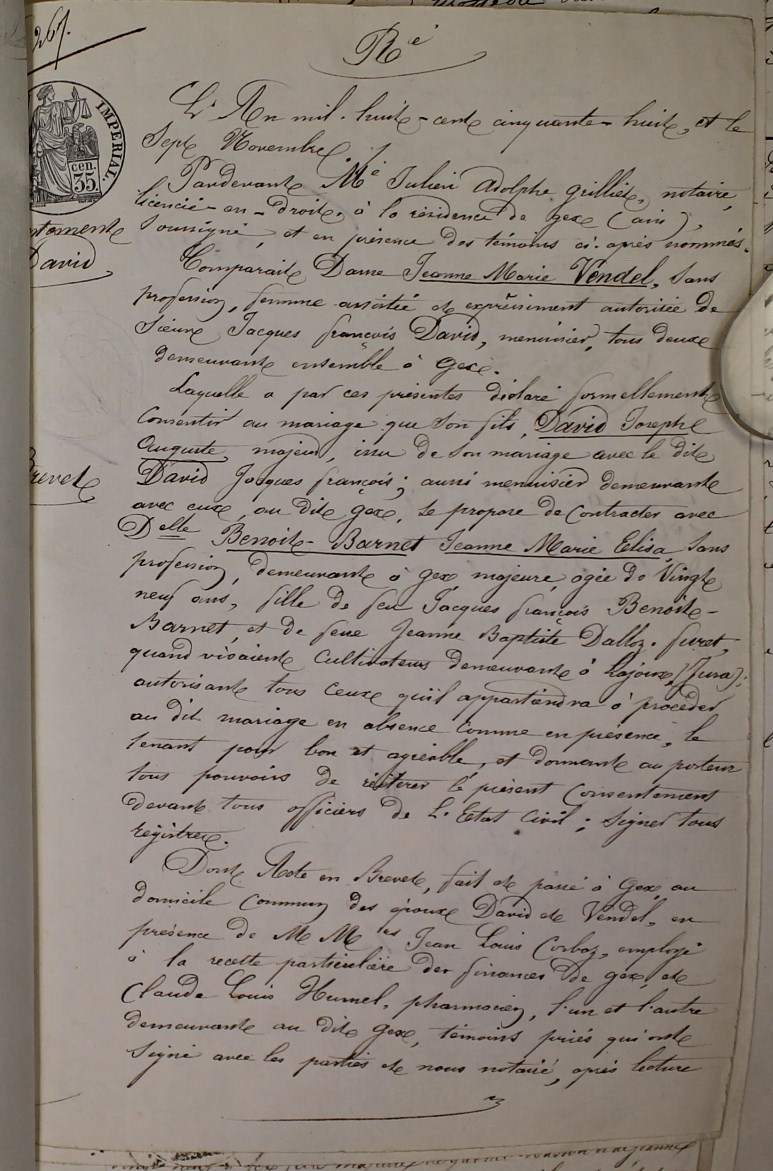 267.
Ré
IMPERIAL.
35 cen.
L'An mil-huit-cent cinquante-huit, et le
Sept Novembre,
Pardevant Me Julien Adolphe Grilliet, notaire,
licencié-en-droit, à la résidence de Gex (ain),
soussigné, et en présence des témoins ci-après nommés.
David
Comparait Dame Jeanne Marie Vendel, sans
profession, femme assistée et expressiment autorisée de
Sieur Jacques françois David, menuisier, tous deux
demeurant ensemble à Gex.
Laquelle a par ces présentes déclaré formellement
consentir au mariage que son fils, David Joseph
Auguste, majeur, issu de son mariage avec le dit
Brevet
David Jacques françois; aussi menuisier demeurant
avec eux, au dit Gex, se propose de contracter avec
Delle Benoit-Barnet Jeanne Marie Elisa, sans
profession, demeurant à Gex majeure, agée de Vingt
neuf ans, fille de feu Jacques françois Benoit-
Barnet, et de feue Jeanne Baptiste Dalloz-furet,
quand vivaient Cultivateurs demeurant à Lajoux, (Jura);
autorisant tous ceux qu'il appartiendra à procéder
au dit mariage en absence comme en présence, le
tenant pour bon et agréable, et donnant au porteur
tous pouvoirs de réiterer le présent Consentement
devant tous officiers de L'Etat Civil; signer tous
registres.
Dont Acte en Brevet, fait et passé à Gex au
domicile commun des époux David et Vendel, en
présence de M Mrs Jean Louis Corboz, employé
à la recette particulière des finances De gex, et
Claude Louis Humel, pharmacien, l'un et l'autre
demeurant au dit Gex, témoins priés qui ont
Signé avec les parties et nous notaire, après lecture